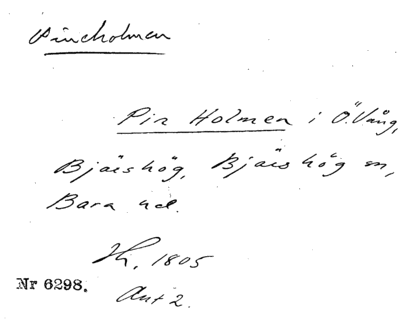 Pineholmen
Pin Holmen i Ö. Vång,
Bjäishög, Bjäishög sn,
Bara hd.
Th. 1805
Nr 6298.
Akt 2.